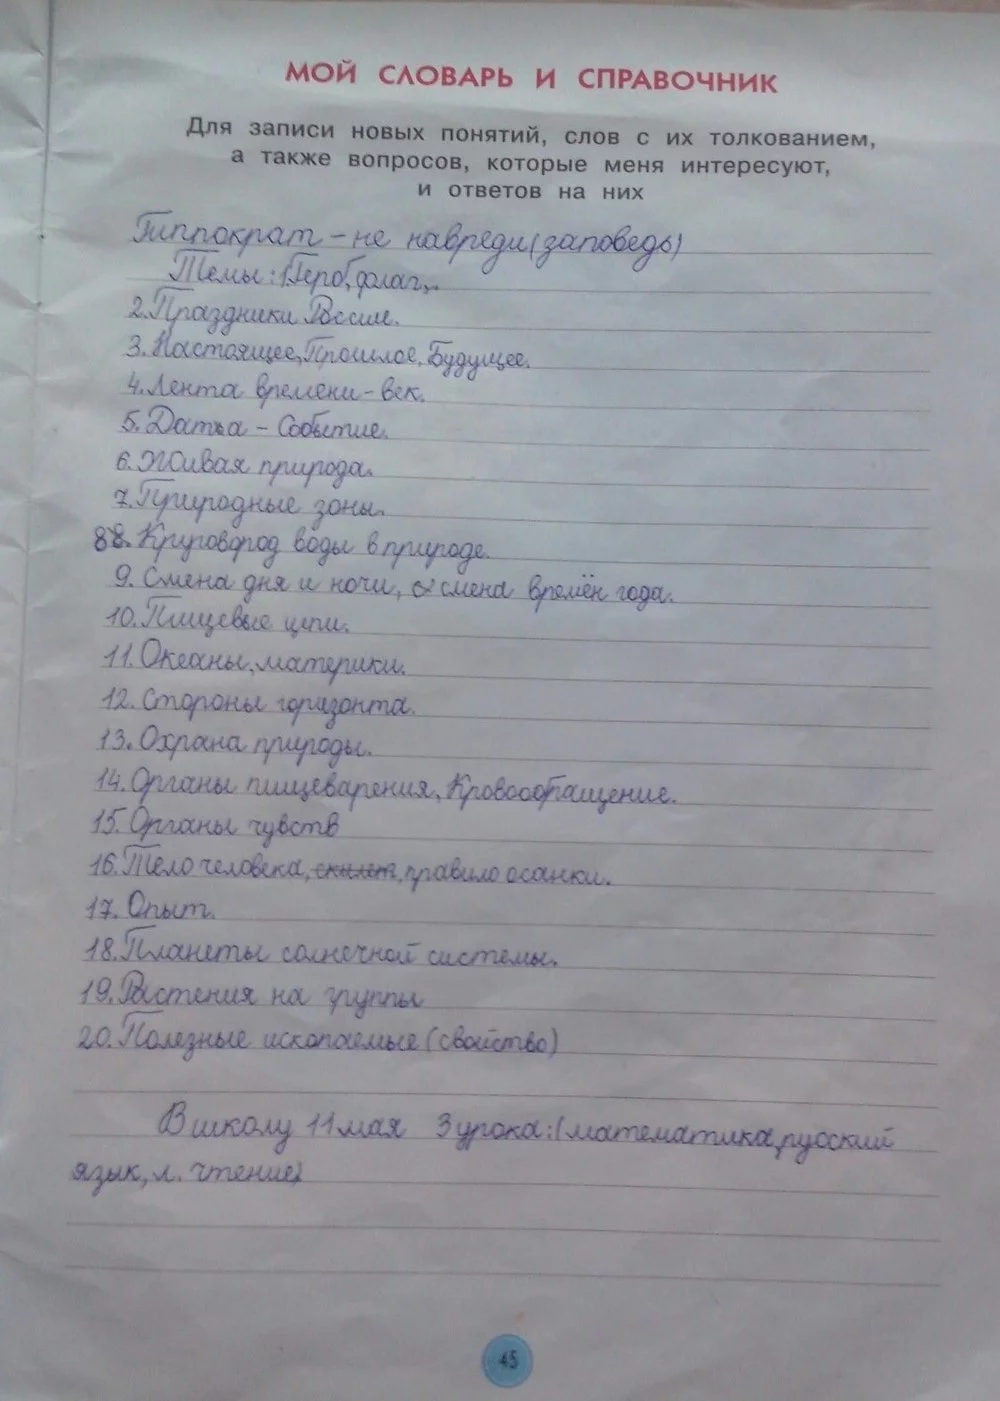 МОЙ СЛОВАРЬ И СПРАВОЧНИК
Для записи новых понятий, слов с их толкованием,
а также вопросов, которые меня интересуют,
и ответов на них
Гиппократ - не навреди (заповедь)
Темы: 1.Герб, флаг,..
2.Праздники России.
3.Настоящее, Прошлое, Будущее.
4.Лента времени - век.
5.Датьа - Событие.
6.Живая природа.
7.Природные зоны.
88.Круговород воды в природе.
9.Смена дня и ночи, смена времён года.
10.Пищевые цепи.
11.Океаны, материки.
12.Стороны горизонта.
13.Охрана природы.
14.Органы пищеварения, Кровообращение.
15.Органы чувств
16.Тело человека, скелет, правило осанки.
17.Опыт.
18.Планеты солнечной системы.
19.Растения на группы
20.Полезные ископаемые (свойство)
В школу 11 мая 3 урока: (математика, русский
язык, л. чтение)
45